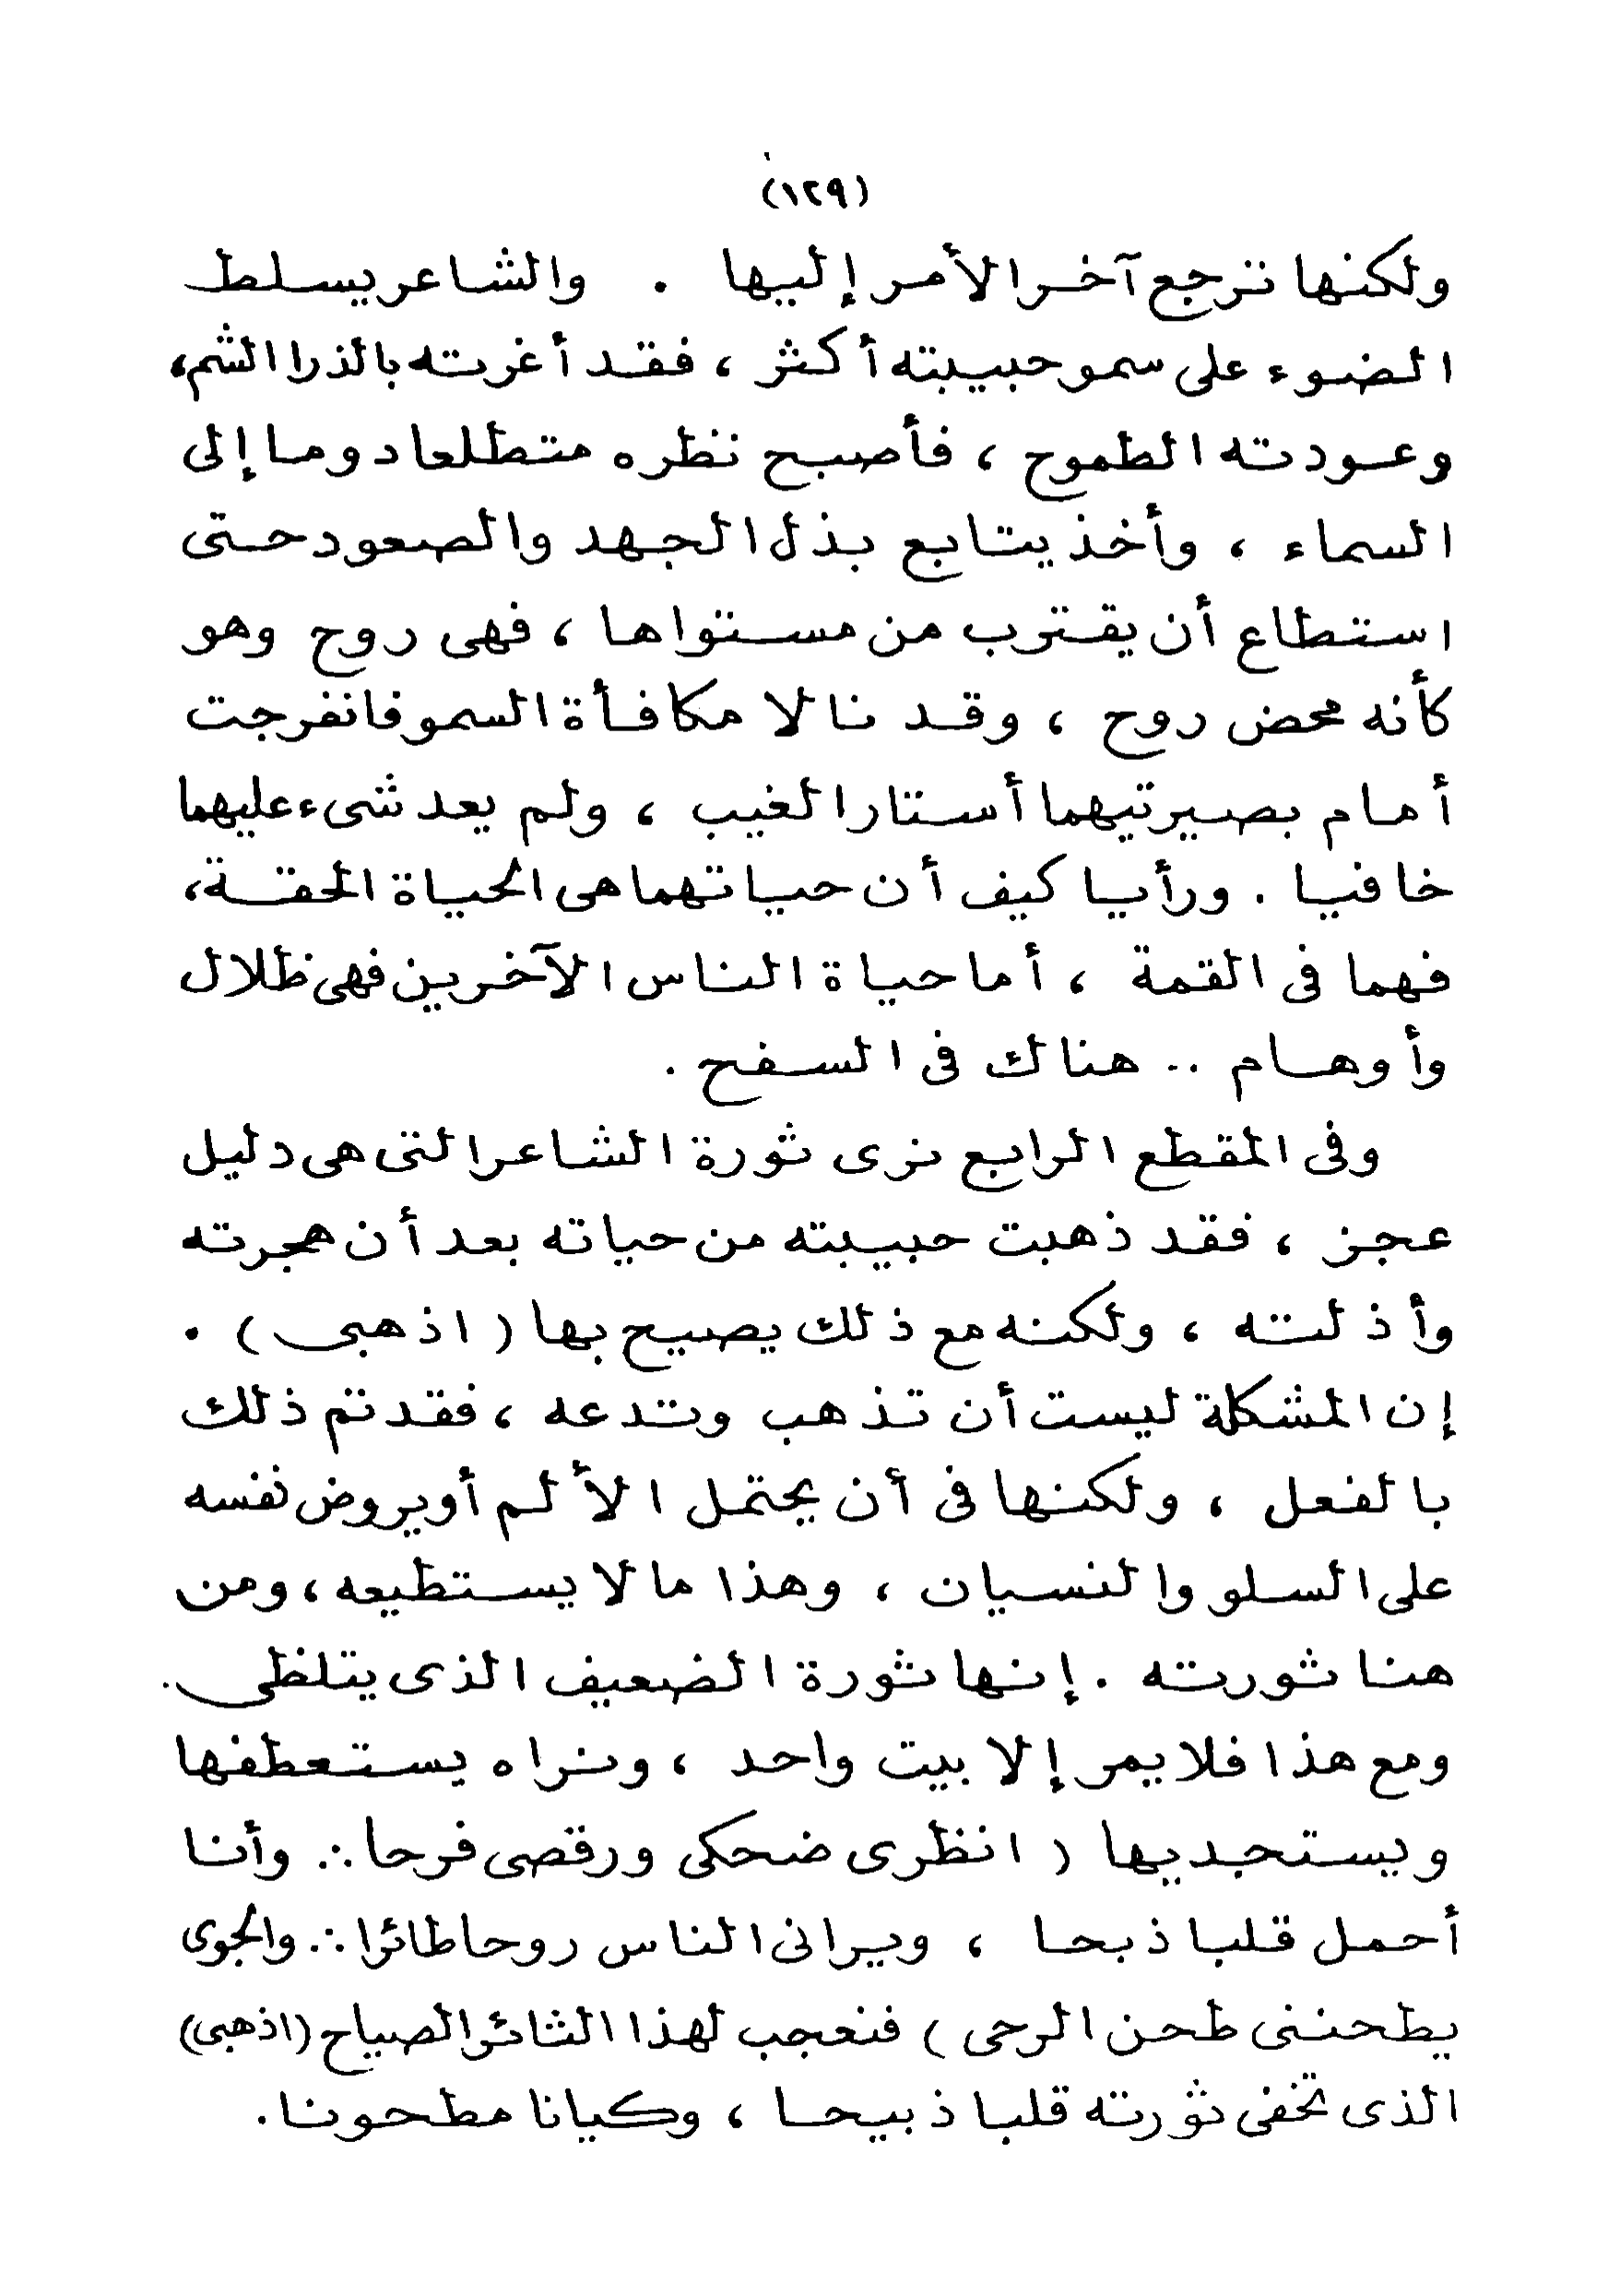 (١٢٩)
ولكنها ترجع آخر الأمر إليها . والشاعر يسلط
الضوء على سمو حبيبته أكثر ، فقد أغرته بالذرا الشم،
وعودته الطموح ، فأصبح نظره متطلعا دوما إلى
السماء ، وأخذ يتابع بذل الجهد والصعود حتى
استطاع أن يقترب من مستواها ، فهى روح وهو
كأنه محض روح ، وقد نالا مكافأة السمو فانفرجت
أمام بصيرتيهما أستار الغيب ، ولم يعد شىء عليهما
خافيا . ورأيا كيف أن حياتهما هى الحياة الحقة،
فهما فى القمة ، أما حياة الناس الآخرين فهى ظلال
وأوهام .. هناك فى السفح .
وفى المقطع الرابع نرى ثورة الشاعر التى هى دليل
عجز ، فقد ذهبت حبيبته من حياته بعد أن هجرته
وأذلته ، ولكنه مع ذلك يصيح بها ( اذهبى ) .
إن المشكلة ليست أن تذهب وتدعه ، فقد تم ذلك
بالفعل ، ولكنها فى أن يحتمل الألم أو يروض نفسه
على السلو والنسيان ، وهذا ما لا يستطيعه ، ومن
هنا ثورته . إنها ثورة الضعيف الذى يتلظى .
ومع هذا فلا يمر إلا بيت واحد ، ونراه يستعطفها
ويستجديها ( انظرى ضحكى ورقصى فرحا ∴ وأنا
أحمل قلبا ذبحا ، ويرانى الناس روحا طائرا ∴ والجوى
يطحننى طحن الرحى ) فنعجب لهذا الثائر الصياح (اذهبى)
الذى تخفى ثورته قلبا ذبيحا ، وكيانا مطحونا .